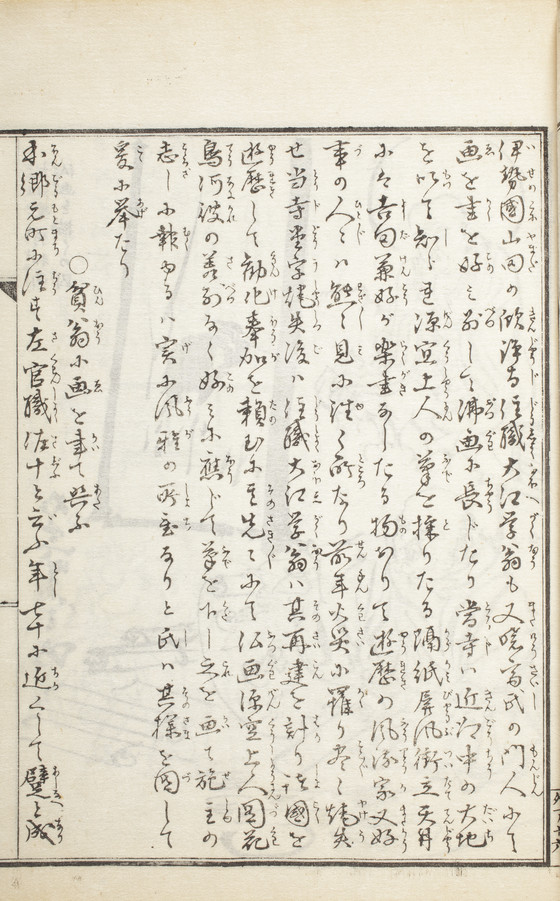 伊勢國山田の欣浄寺住職大江学翁も又暁斎氏の門人にて
画を畫を好み別して佛画に長じたり當寺ハ近江中の大地
を以て知られ源空上人の筆を採りたる隔紙屏風衝立天井
に吉田兼好が楽書なしたる物ありて遊歴の風流家又好
事の人々ハ熟く見に詣る所なり前年火災に罹り尽く焼失
せ当寺堂宇焼失後ハ住職大江学翁ハ其再建を計り諸國を
遊歴して勧化奉加を頼むに其先々にて仏画源空上人図花
鳥何彼の差別なく好みに應じて筆を下し之を画て施主の
志しに報ゆるハ実に風雅の所置なりと氏ハ其様を図して
爰に挙たり
○貧翁に画を畫て与ふ
本郷元町に住す左官職佐十と云ふ年七十に近くして躄と成